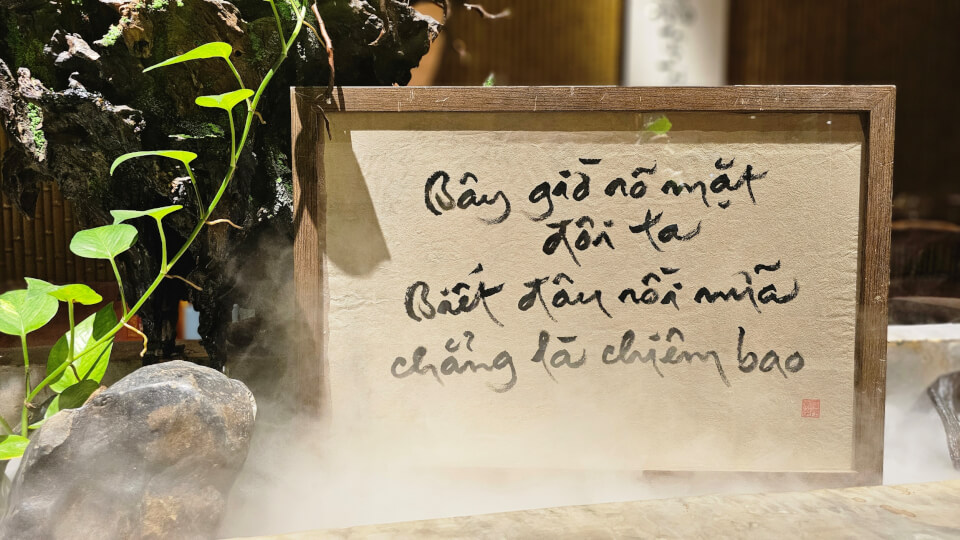 Bây giờ rõ mặt
đôi ta
Biết đâu rồi nữa
chẳng là chiêm bao